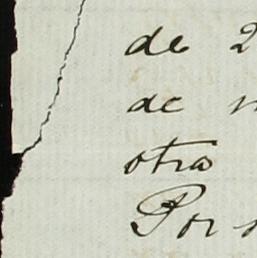 de 2
de
otra
Por